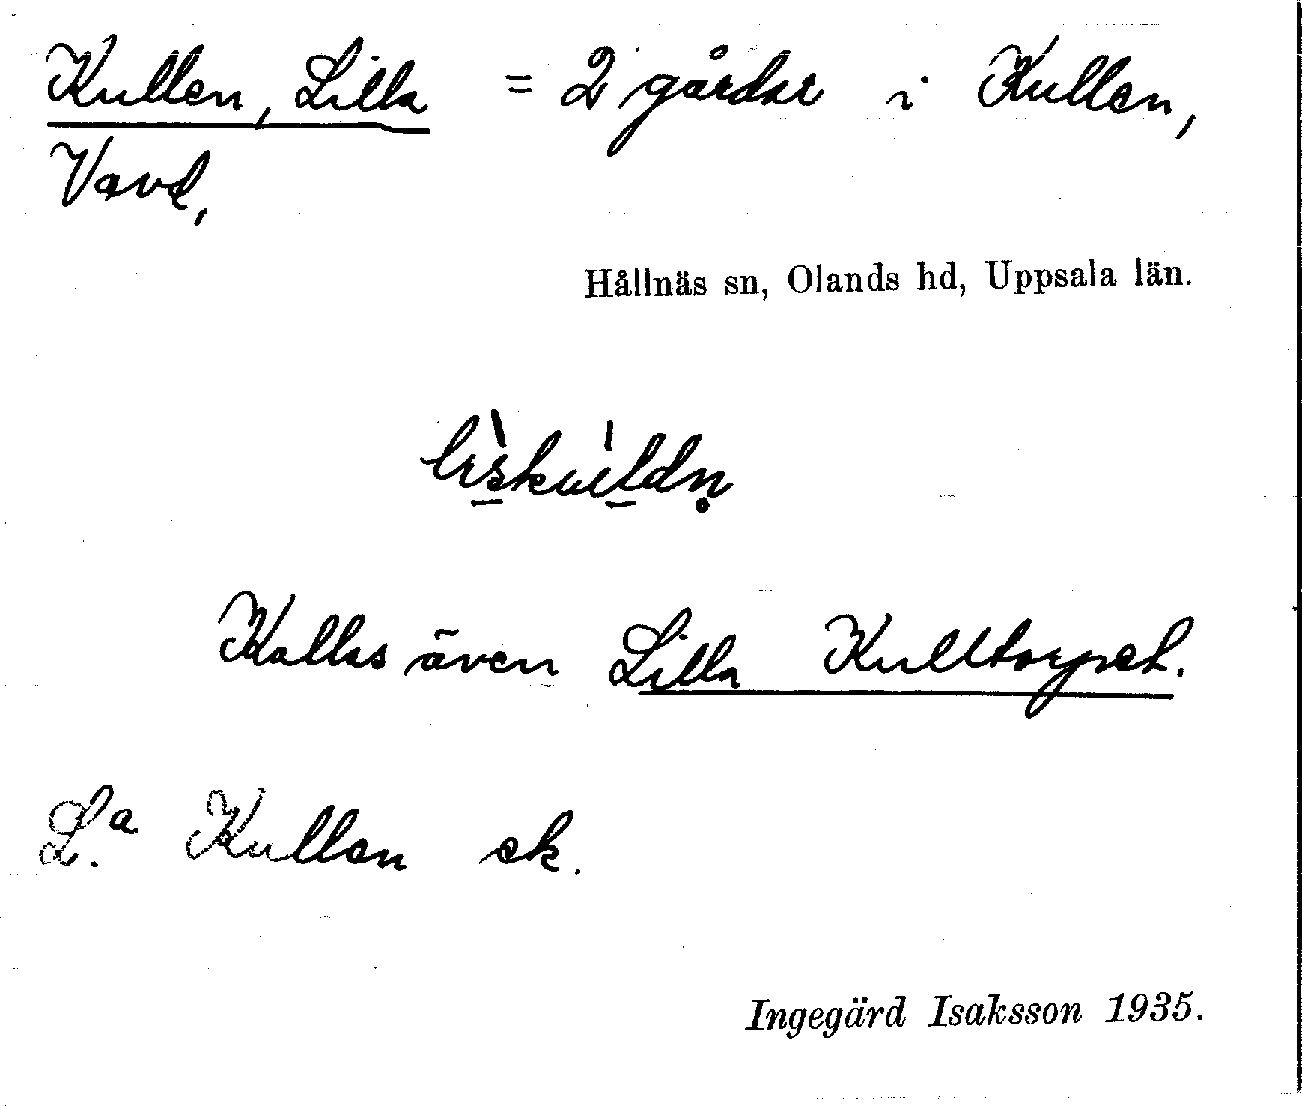 Kullen, Lilla = 2 gårdar i Kullen,
Vavd,
Hållnäs sn, Olands hd, Uppsala län.
Kallas även Lilla Kulltorpet.
L.a Kullen ek.
Ingegärd Isaksson 1935.